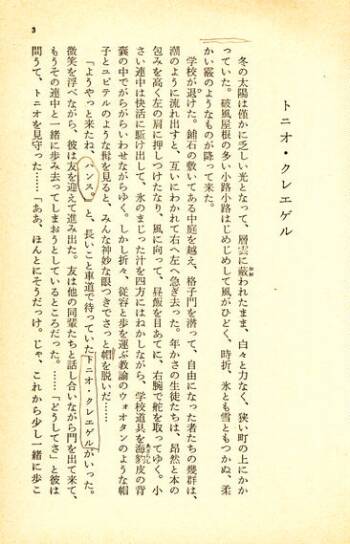 3
トニオ・クレエゲル
冬の太陽は僅かに乏しい光となって、層雲に蔽われたまま、白々と力なく、狭い町の上にかか
っていた。破風屋根の多い小路小路はじめじめして風がひどく、時折、氷とも雪ともつかぬ、柔
かい霰のようなものが降って来た。
学校が退けた。鋪石の敷いてある中庭を越え、格子門を潜って、自由になった者たちの幾群は、
潮のように流れ出すと、互いにわかれて右へ左へ急ぎ去った。年かさの生徒たちは、昂然と本の
包みを高く左の肩に押しつけたなり、風に向って、昼飯を目あてに、右腕で舵を取ってゆく。小
さい連中は快活に駈け出して、氷のまじった汁を四方にはねかしながら、学校道具を海豹皮の背
嚢の中でがらがらいわせながらゆく。しかし折々、従容と歩を運ぶ教諭のウォオタンのような帽
子とユピテルのような髯を見ると、みんな神妙な眼つきでさっと帽を脱いだ……
「ようやっと来たね、ハンス」と、長いこと車道で待っていたトニオ・クレエゲルがいった。
微笑を浮べながら、彼は友を迎えて進み出た。友は他の同輩たちと話し合いながら門を出て来て、
もうその連中と一緒に歩み去ってしまおうとしているところだった。……「どうしてさ」と彼は
問うて、トニオを見守った……「ああ、ほんとにそうだっけ。じゃ、これから少し一緒に歩こ